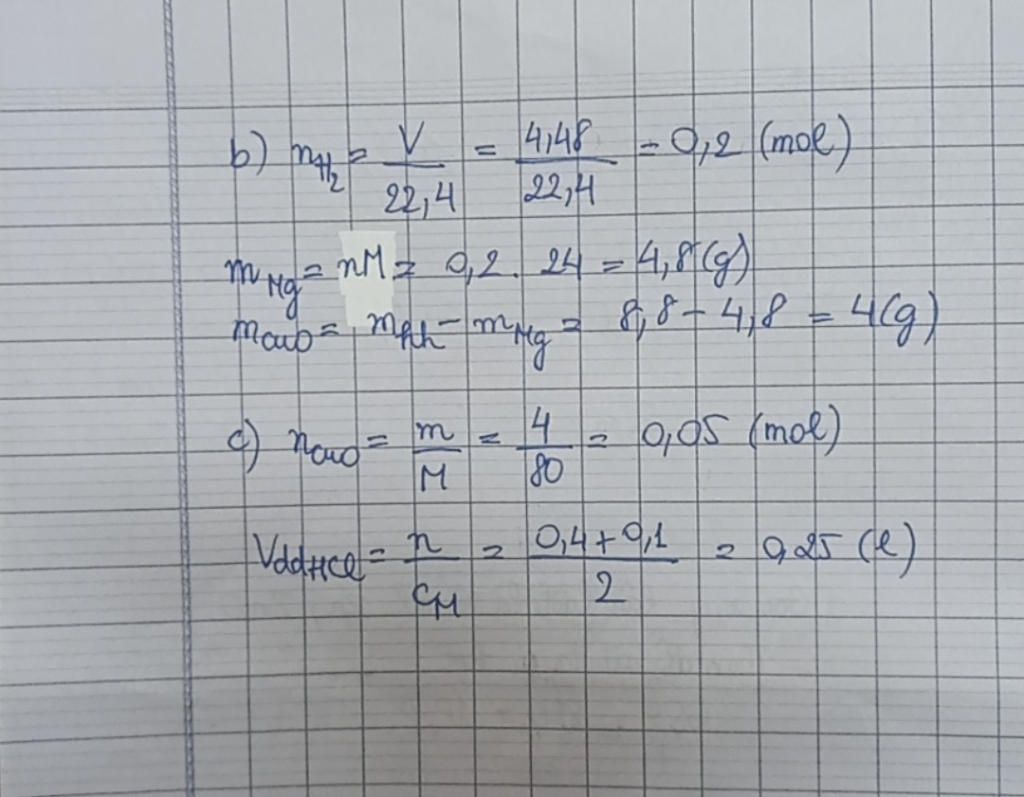 b) nH₂ = V/22,4 = 4,48/22,4 = 0,2 (mol)
mMg = nM = 0,2 . 24 = 4,8 (g)
mCuO = mhh - mMg = 8,8 - 4,8 = 4 (g)
c) nCuO = m/M = 4/80 = 0,05 (mol)
VddHCl = n/CM = 0,4 + 0,1/2 = 0,25 (l)